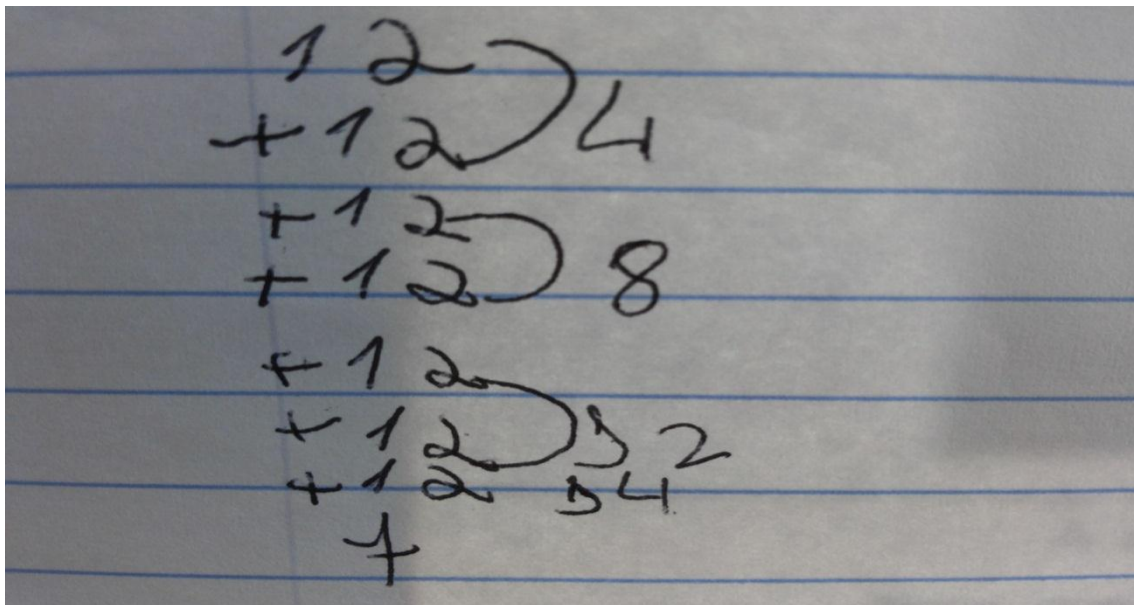 12
+12 4
+12
+12 8
+12
+12 12
+12 14
7